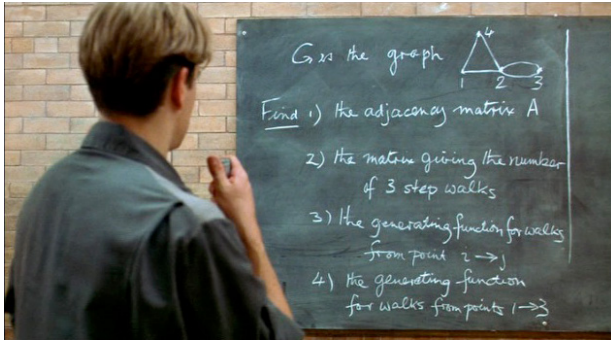 G is the graph
4
1 2 3
Find 1) the adjacency matrix A
2) the matrix giving the number
of 3 step walks
3) the generating function for walks
from point 2 → j
4) the generating function
for walks from points 1 → 3